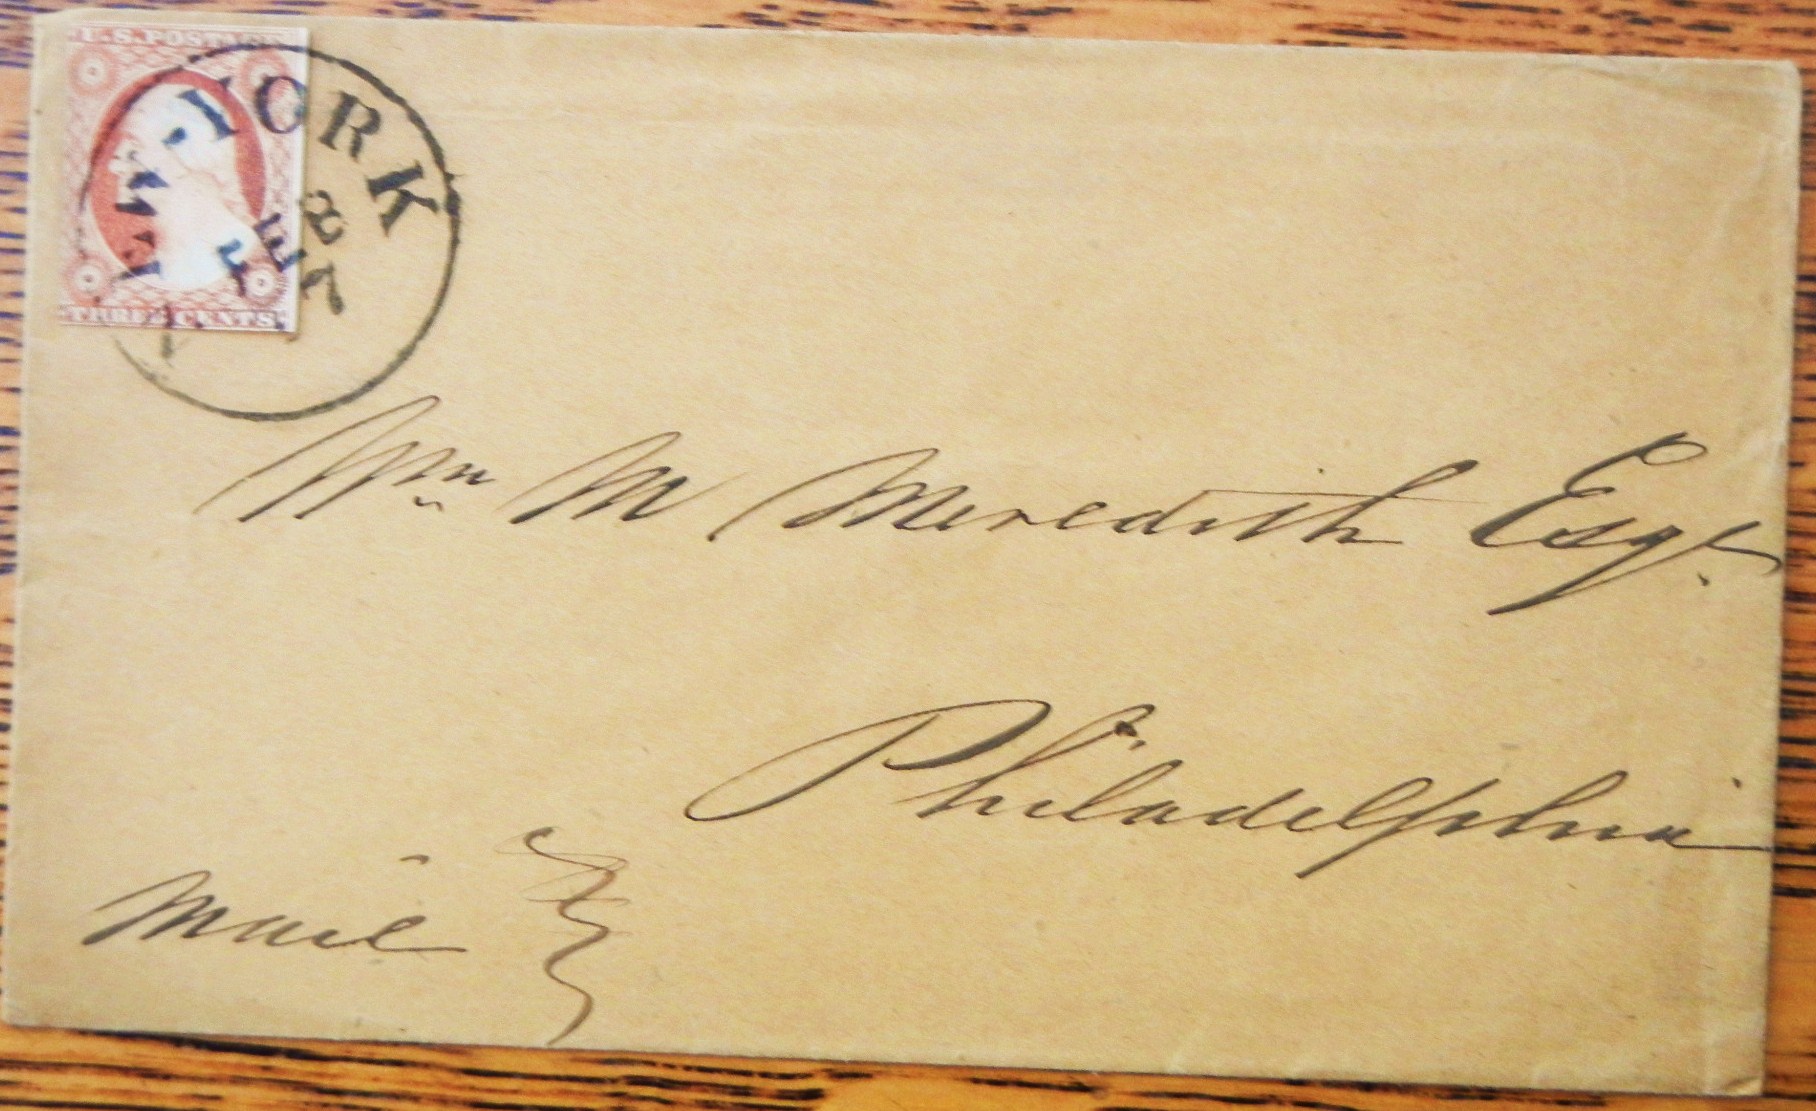 U.S. POSTAGE
THREE CENTS
NEW-YORK
FEB
7
Wm M Meredith Esqr.
Philadelphia
Mail